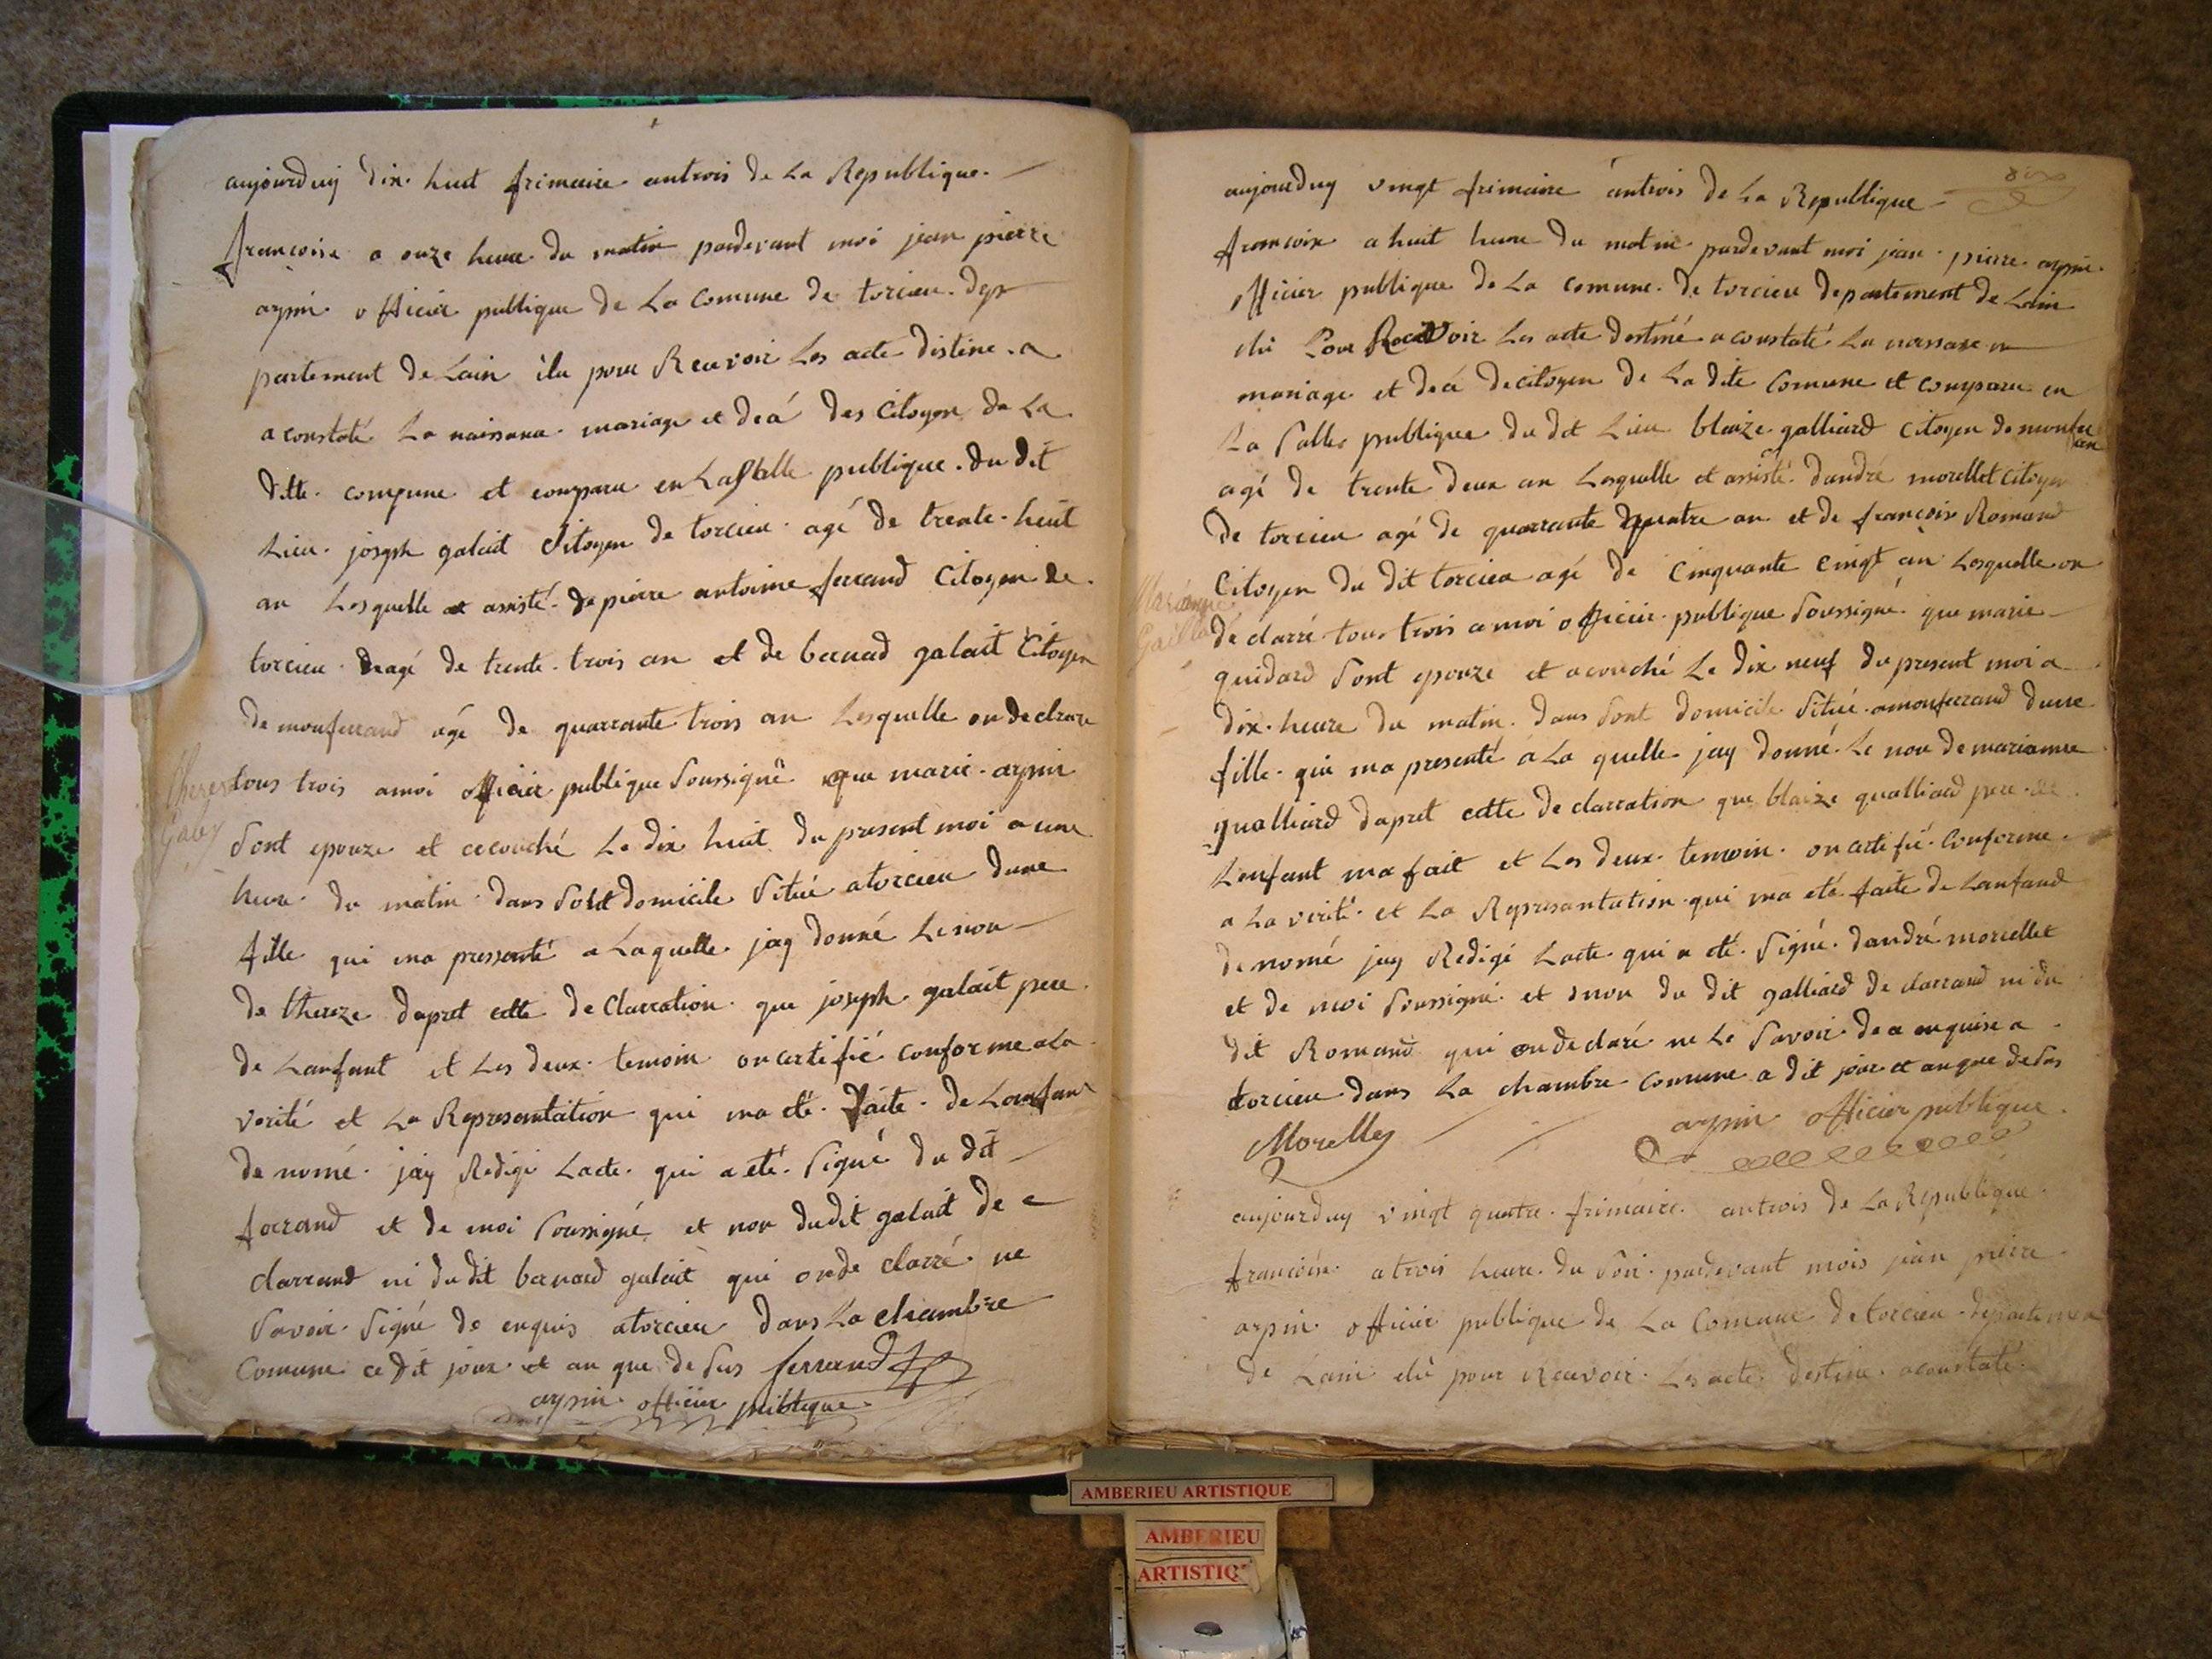 aujourduy dix huit frimaire antrois de La Republique
francoise a onze heure du matin pardevant moi jean pierre
arpin officier publique de La Comune de torcieu dep
partement de Lain élu pour Recevoir Les acte distine a
aconstaté La naissance mariage et decé des Citoyen de La
ditte comune et comparu en La Salle publique du dit
Lieu joseph galait Citoyen de torcieu agé de trente huit
an Lesquelle et assisté de pierre antoine ferrand Citoyen de
torcieu agé de trente trois an et de bernad galait Citoyen
de monferrand agé de quarrante trois an Lesquelle on declrare
Therese tous trois amoi officier publique Soussigné que marie arpin
Galey Sont epouze et acouché Le dix huit du present moi a une
heure du matin dans Sont domicile Situé atorcieu dune
fille qui ma pressenté a Laquelle jay donné Le nom
de thereze dapret cette de Clarration que joseph galait pere
de Lanfant et Les deux temoin on certifié conforme a La
verité et La Representaition qui ma eté faite de Lanfant
de nomé jay Redigé Lacte qui a eté Signé du dit
farrand et de moi Soussigné et non dudit galait de
clarrand ni du dit bernard galait qui onde clarré ne
Savoir Signé de enquis atorcieu dans La chambre
Comune ce dit jour et an que de Sus ferrand
arpin officier publique
aujourduy vingt frimaire antrois de La Republique
francoise a huit heure du matin pardevant moi jean pierre arpin
officier publique de La comune de torcieu departement de Lain
élu Pour Recevoir Les acte destiné a constaté La naissance
mariage et decé de citoyen de La dite Comune et comparu en
La Salle publique du dit Lieu blaize galliard Citoyen de monferran
agé de trente deux an Lesquelle et assisté dandré morellet Citoyen
de torcieu agé de quarrante quatre an et de francois Romand
Citoyen du dit torcieu agé de Cinquante Cinqt an Lesquelle on
Marianne Gaillard de clarré tous trois a moi officier publique Soussigné que marie
guidard Sont epouze et acouché Le dix neuf du present moi a
dix heure du matin dans Sont domicile Situé amonferrand dune
fille qui ma presenté a La quelle jay donné Le nom de marianne
qualliard dapret cette de clarration que blaize qualliard pere de
Lenfant ma fait et Les deux temoin on certifié Conforme
a La verité et La Represantation qui ma eté faite de Lanfand
de nomé jay Redigé Lacte qui a eté Signé dandré moriellet
et de moi Soussigné et non du dit galliard de clarrand ni du
dit Romand qui on de claré ne Le Savoir de a enquise a
torcieu dans La chambre Comune a dit jour et anque de Sus
arpin officier publique
Morelley
aujourduy vingt quatre frimaire antrois de La Republique
francoise atrois heure du Soir pardevant mois jean pierre
arpin officier publique de La Comune de torcieu departemen
de Lain elu pour Recevoir Les acte destine aconstaté
AMBERIEU ARTISTIQUE
AMBERIEU
ARTISTIQ